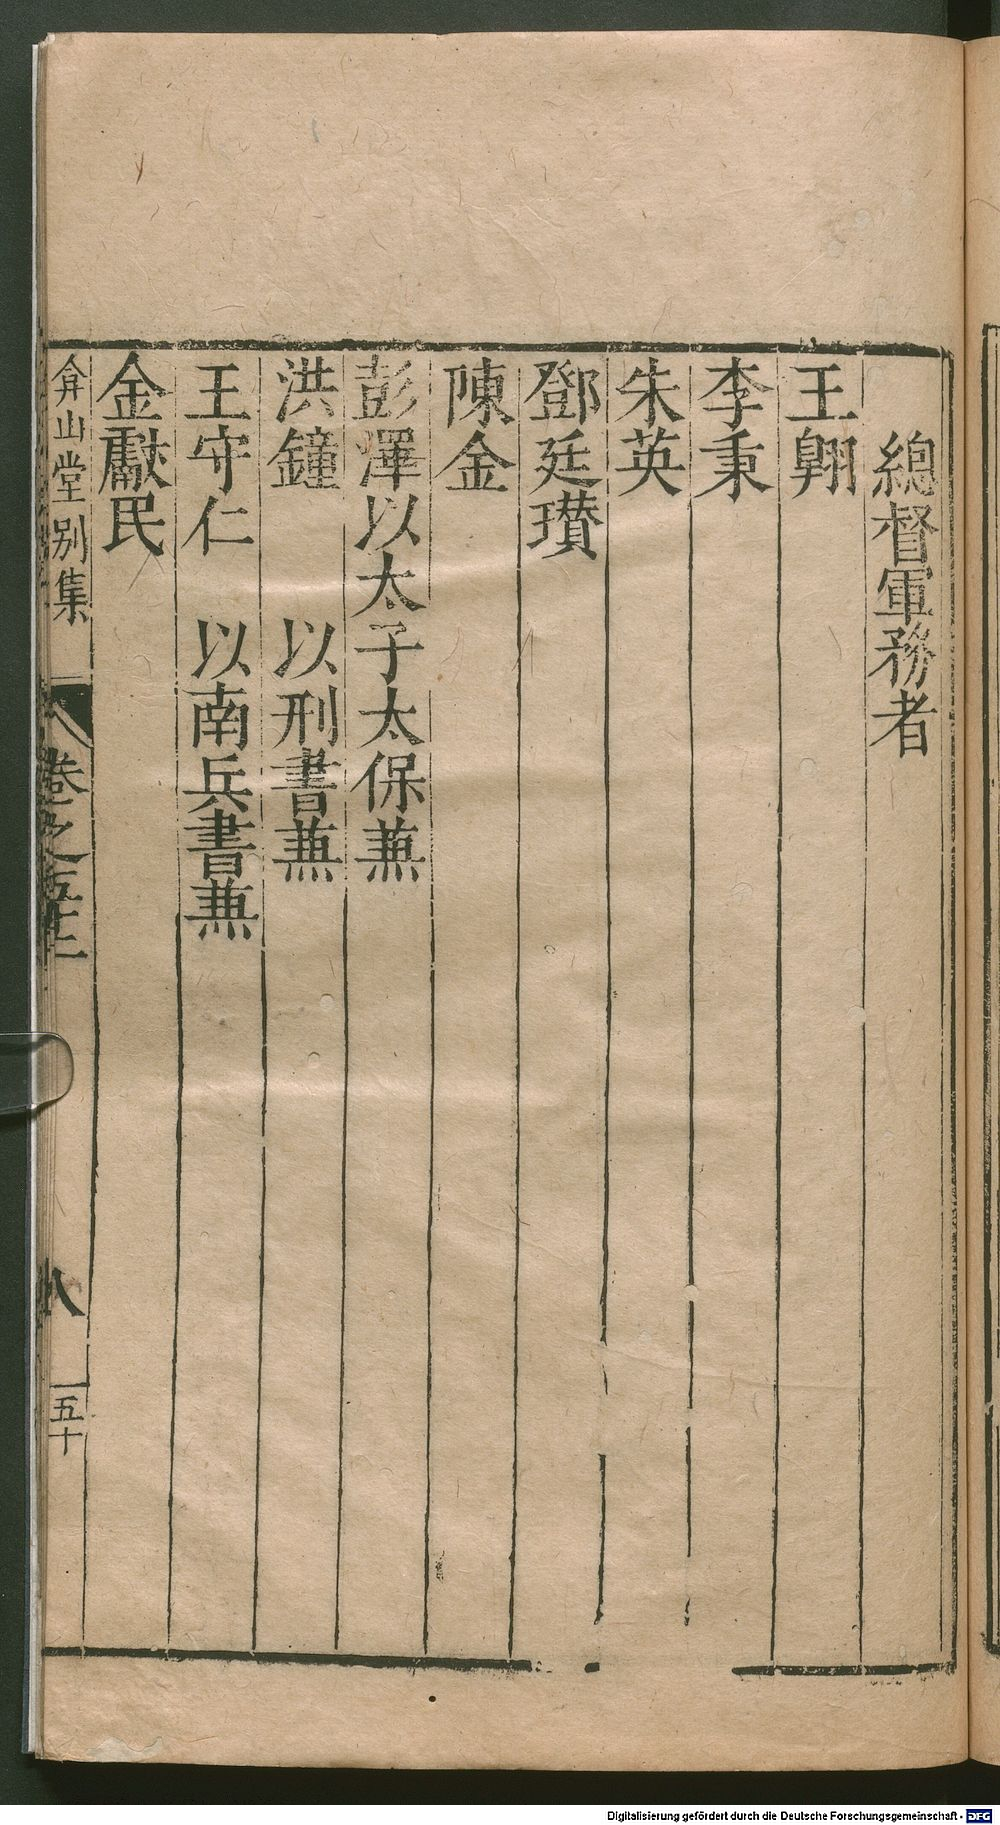 總督軍務者
王翺
李秉
朱英
鄧廷瓉
陳金
彭澤以太子太保兼
洪鐘　以刑書兼
王守仁　以南兵書兼
金獻民
弇山堂別集
卷之五十二
八
五十
Digitalisierung gefördert durch die Deutsche Forschungsgemeinschaft - DFG